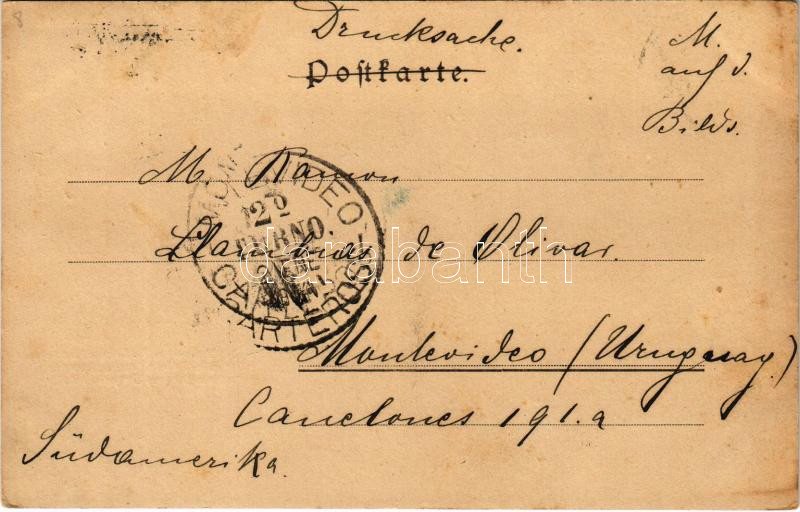 8
Drucksache.
Postkarte.
M.
auf d.
Bilds.
M. Ramon
Llambias de Olivar.
Montevideo (Uruguay.)
Canelones 191.a
Südamerika.
MONTEVIDEO
2º
TURNO.
CARTEROS
darabanth